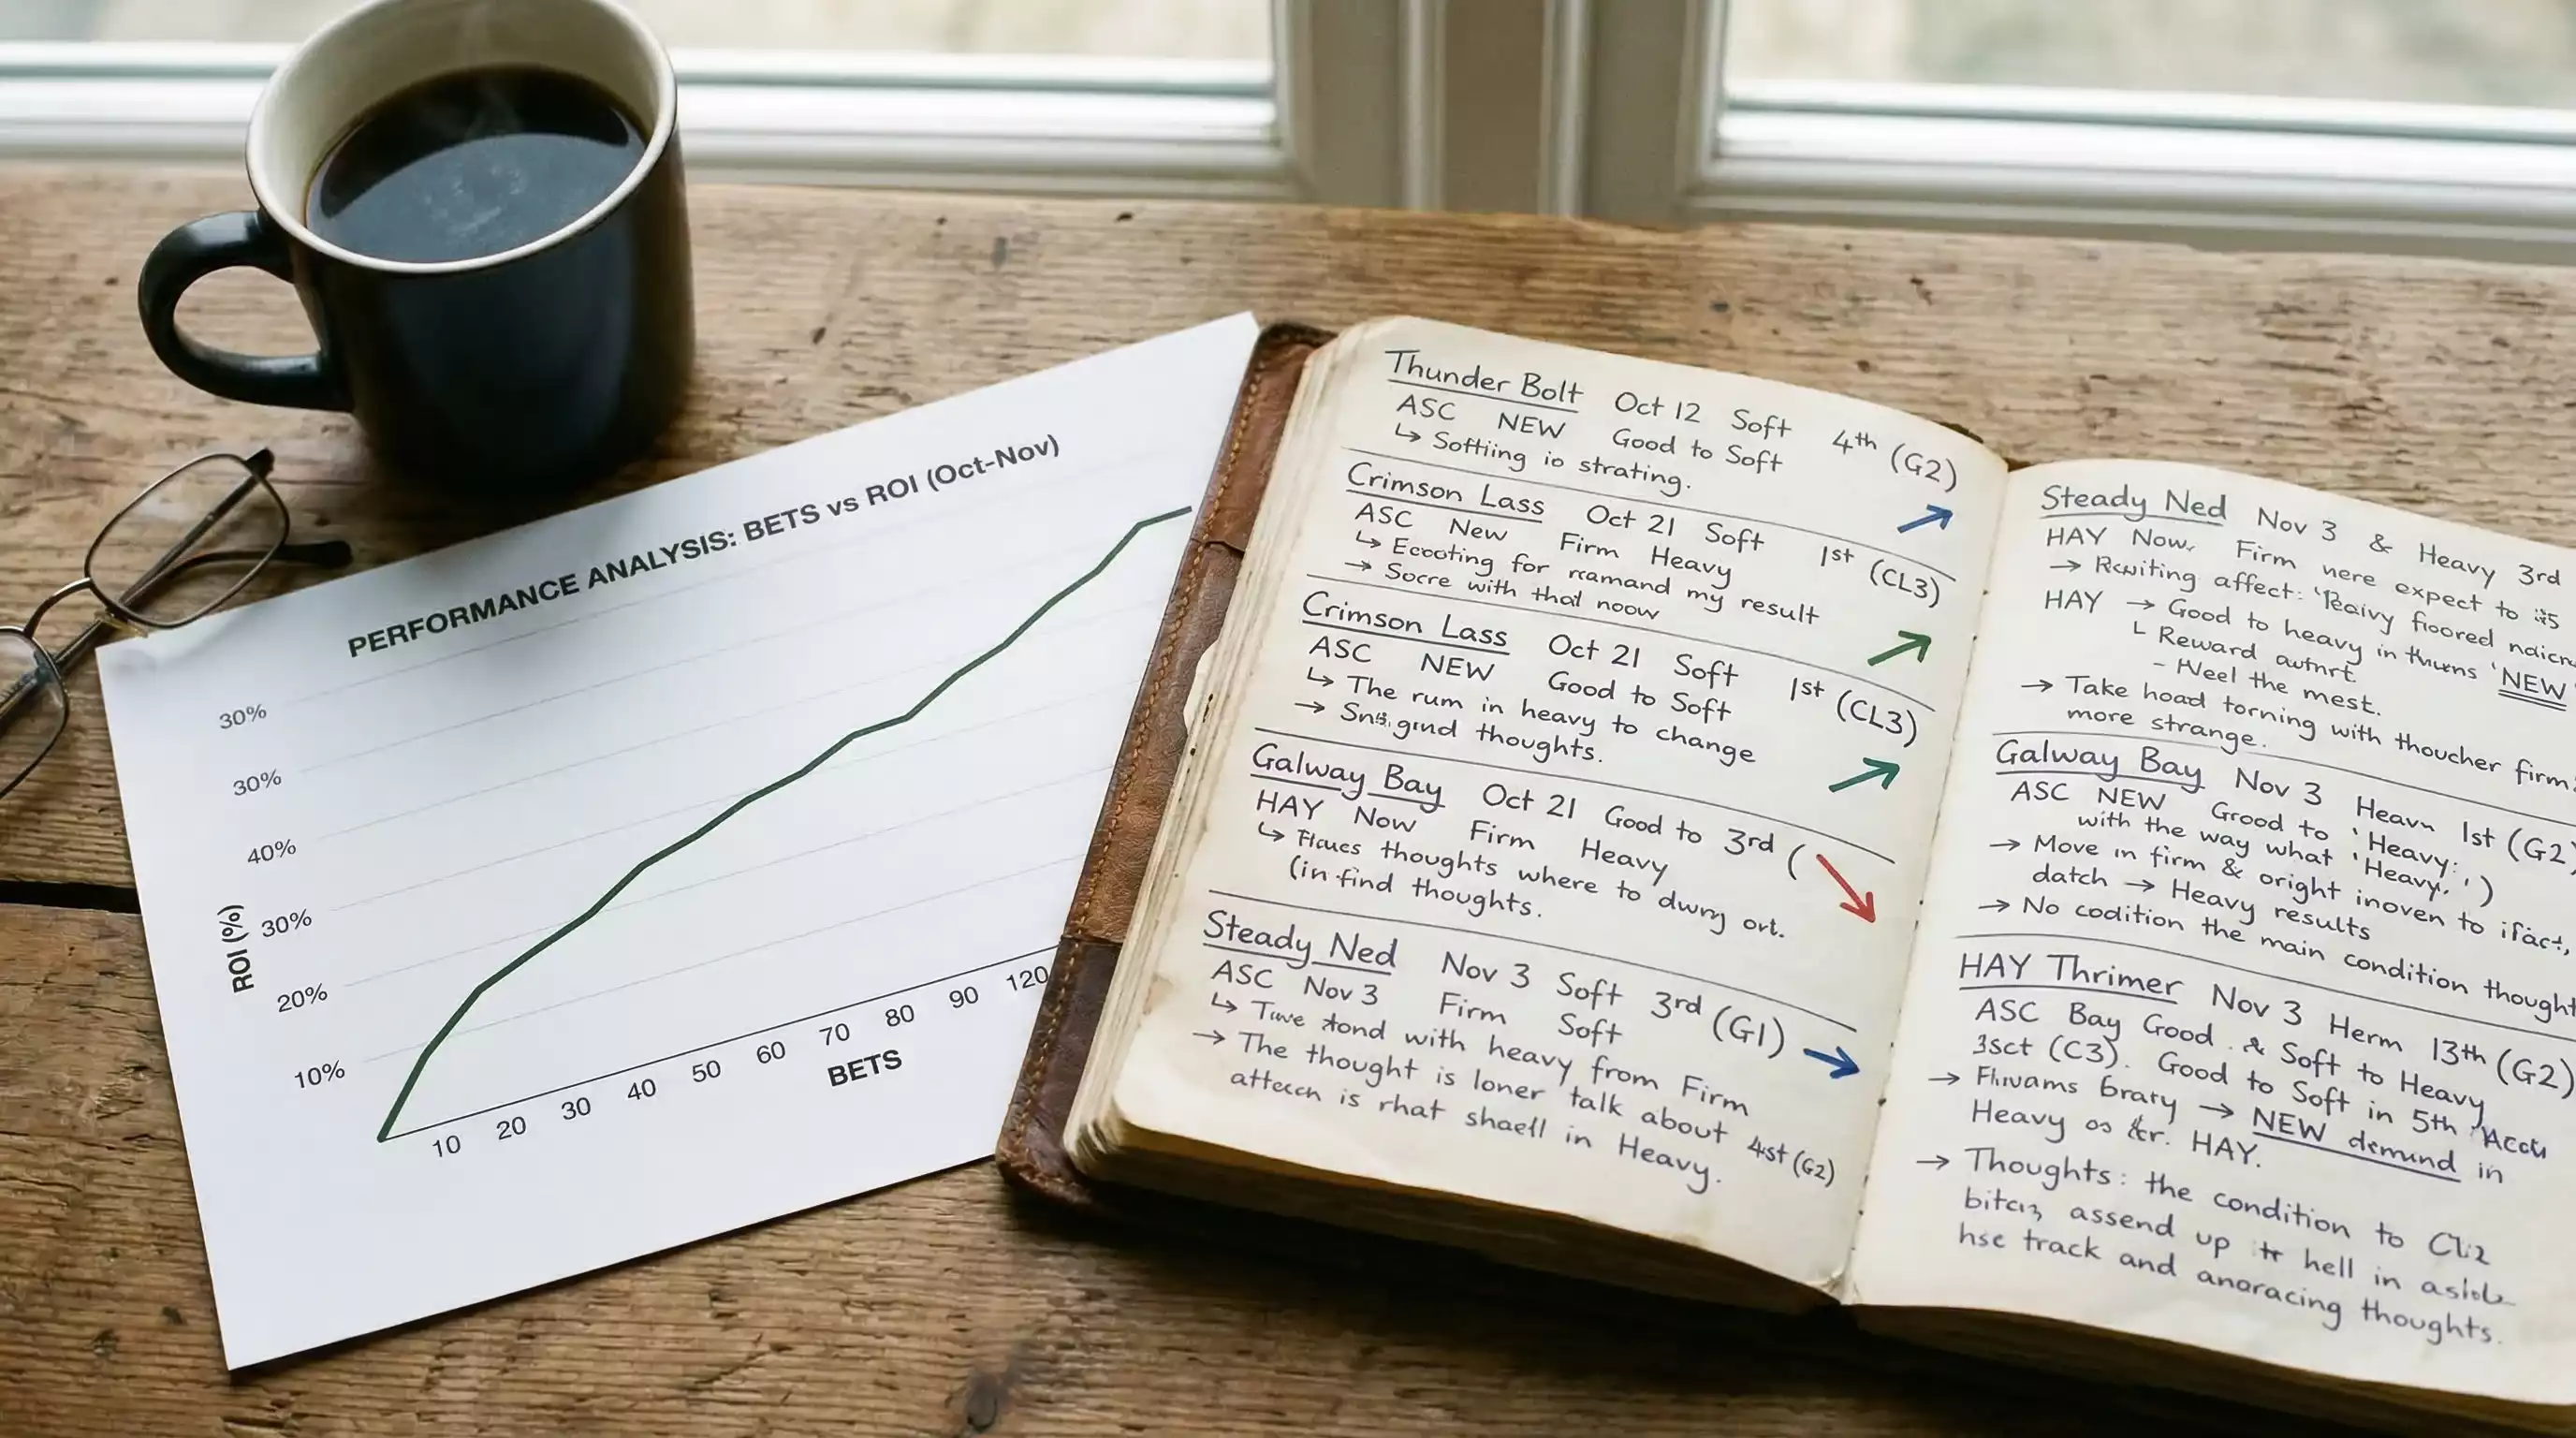 PERFORMANCE ANALYSIS: BETS vs ROI (Oct-Nov)
30%
30%
40%
30%
20%
10%
ROI (%)
10 20 30 40 50 60 70 80 90 120
BETS
Thunder Bolt Oct 12 Soft 4th (G2)
ASC NEW Good to Soft
↳ Softiing io strating.
Crimson Lass Oct 21 Soft 1st (CL3)
ASC New Firm Heavy
↳ Ecooting for ramand my result
→ Socre with thal noow
Crimson Lass Oct 21 Soft 1st (CL3)
ASC NEW Good to Soft
↳ The rum in heavy to change
→ thoughts.
Galway Bay Oct 21 Good to 3rd (
HAY Now Firm Heavy
↳ thoughts where to dwry ort.
(in find thoughts.
Steady Ned Nov 3 Soft 3rd (G1)
ASC Nov 3 Firm Soft
↳ with heavy from Firm
→ The thought is loner talk about 4ıst (G2)
is rhat shaell in Heavy.
Steady Ned Nov 3 & Heavy 3rd
HAY Now, Firm nere expect to
→ affect: fioored
HAY → Good to heavy in 'NEW
↳ Reward
- the mest.
→ Take hoad torning with thoucher firm
more strange.
Galway Bay Nov 3 1st (G2)
ASC NEW Grood to 'Heavy:
with the way what 'Heavy,' )
→ Move in firm & oright inoven to
datch → Heavy results
→ No codition the main condition thought
HAY Thrimer Nov 3 Herm 13th (G2)
ASC Bay Good & Soft to Heavy
(C3). Good to Soft in 5th
→ brary → NEW demund in
Heavy HAY.
→ Thoughts: the condition to
assend up hell in
hse track and anaracing thoughts.